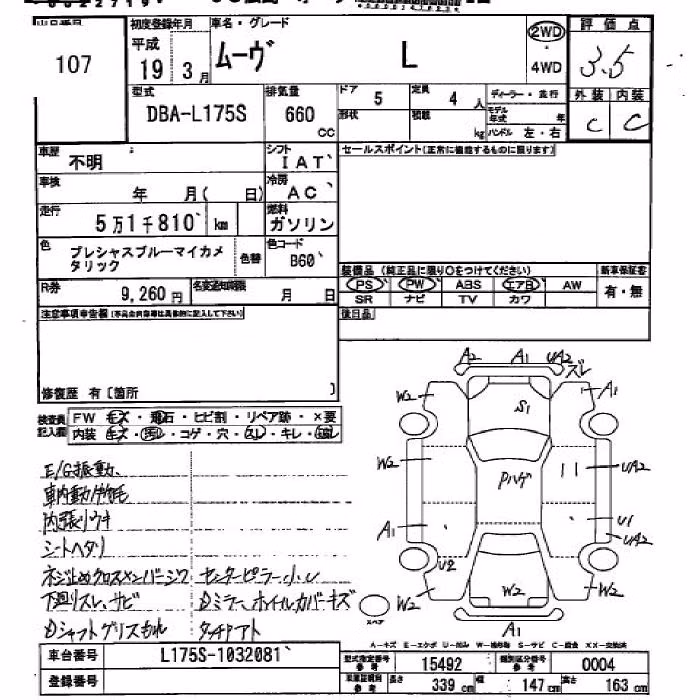 107
初度登録年月 車名・グレード 評価点
平成 19 3月
ムーヴ L
2WD・4WD
3.5
外装 内装
C C
型式 DBA-L175S
排気量 660 CC
ドア 5 定員 4 人
形状 積載 kg
ディーラー・並行
モデル年式 年
ハンドル 左・右
車歴 不明
シフト IAT
セールスポイント(正常に機能するものに限ります)
車検 年 月( 日)
冷房 AC
走行 5万1千810 km
燃料 ガソリン
色 プレシャスブルーマイカメタリック
色替
色コード B60
R券 9,260円
名変通知期限 月 日
装備品 (純正品に限り○をつけてください)
PS PW ABS エアB AW
SR ナビ TV カワ
新車保証書 有・無
後日品
注意事項申告欄
修復歴 有〔箇所 〕
検査員記入欄
FW キズ・飛石・ヒビ割・リペア跡・×要
内装 キズ・汚レ・コゲ・穴・スレ・キレ・
E/G振動、
内張リウキ
シートヘタリ
ネジ止めクロスメンバーシワ センターピラー小U
下廻リスレ、サビ Dミラー、ホイルカバーキズ
Dシャフトグリスもれ タッチアト
A2 A1 UA2 ズレ
W2 A1
S1
W2 Pハゲ UA2
A1 U1
UA2
U2
W2 W2 W2
A1
スペア
A-キズ E-エクボ U-凹み W-補修跡 S-サビ C-腐食 XX-交換済
車台番号 L175S-1032081
登録番号
型式指定番号 参考 15492 類別区分番号 参考 0004
長さ 339 cm 幅 147 cm 高さ 163 cm